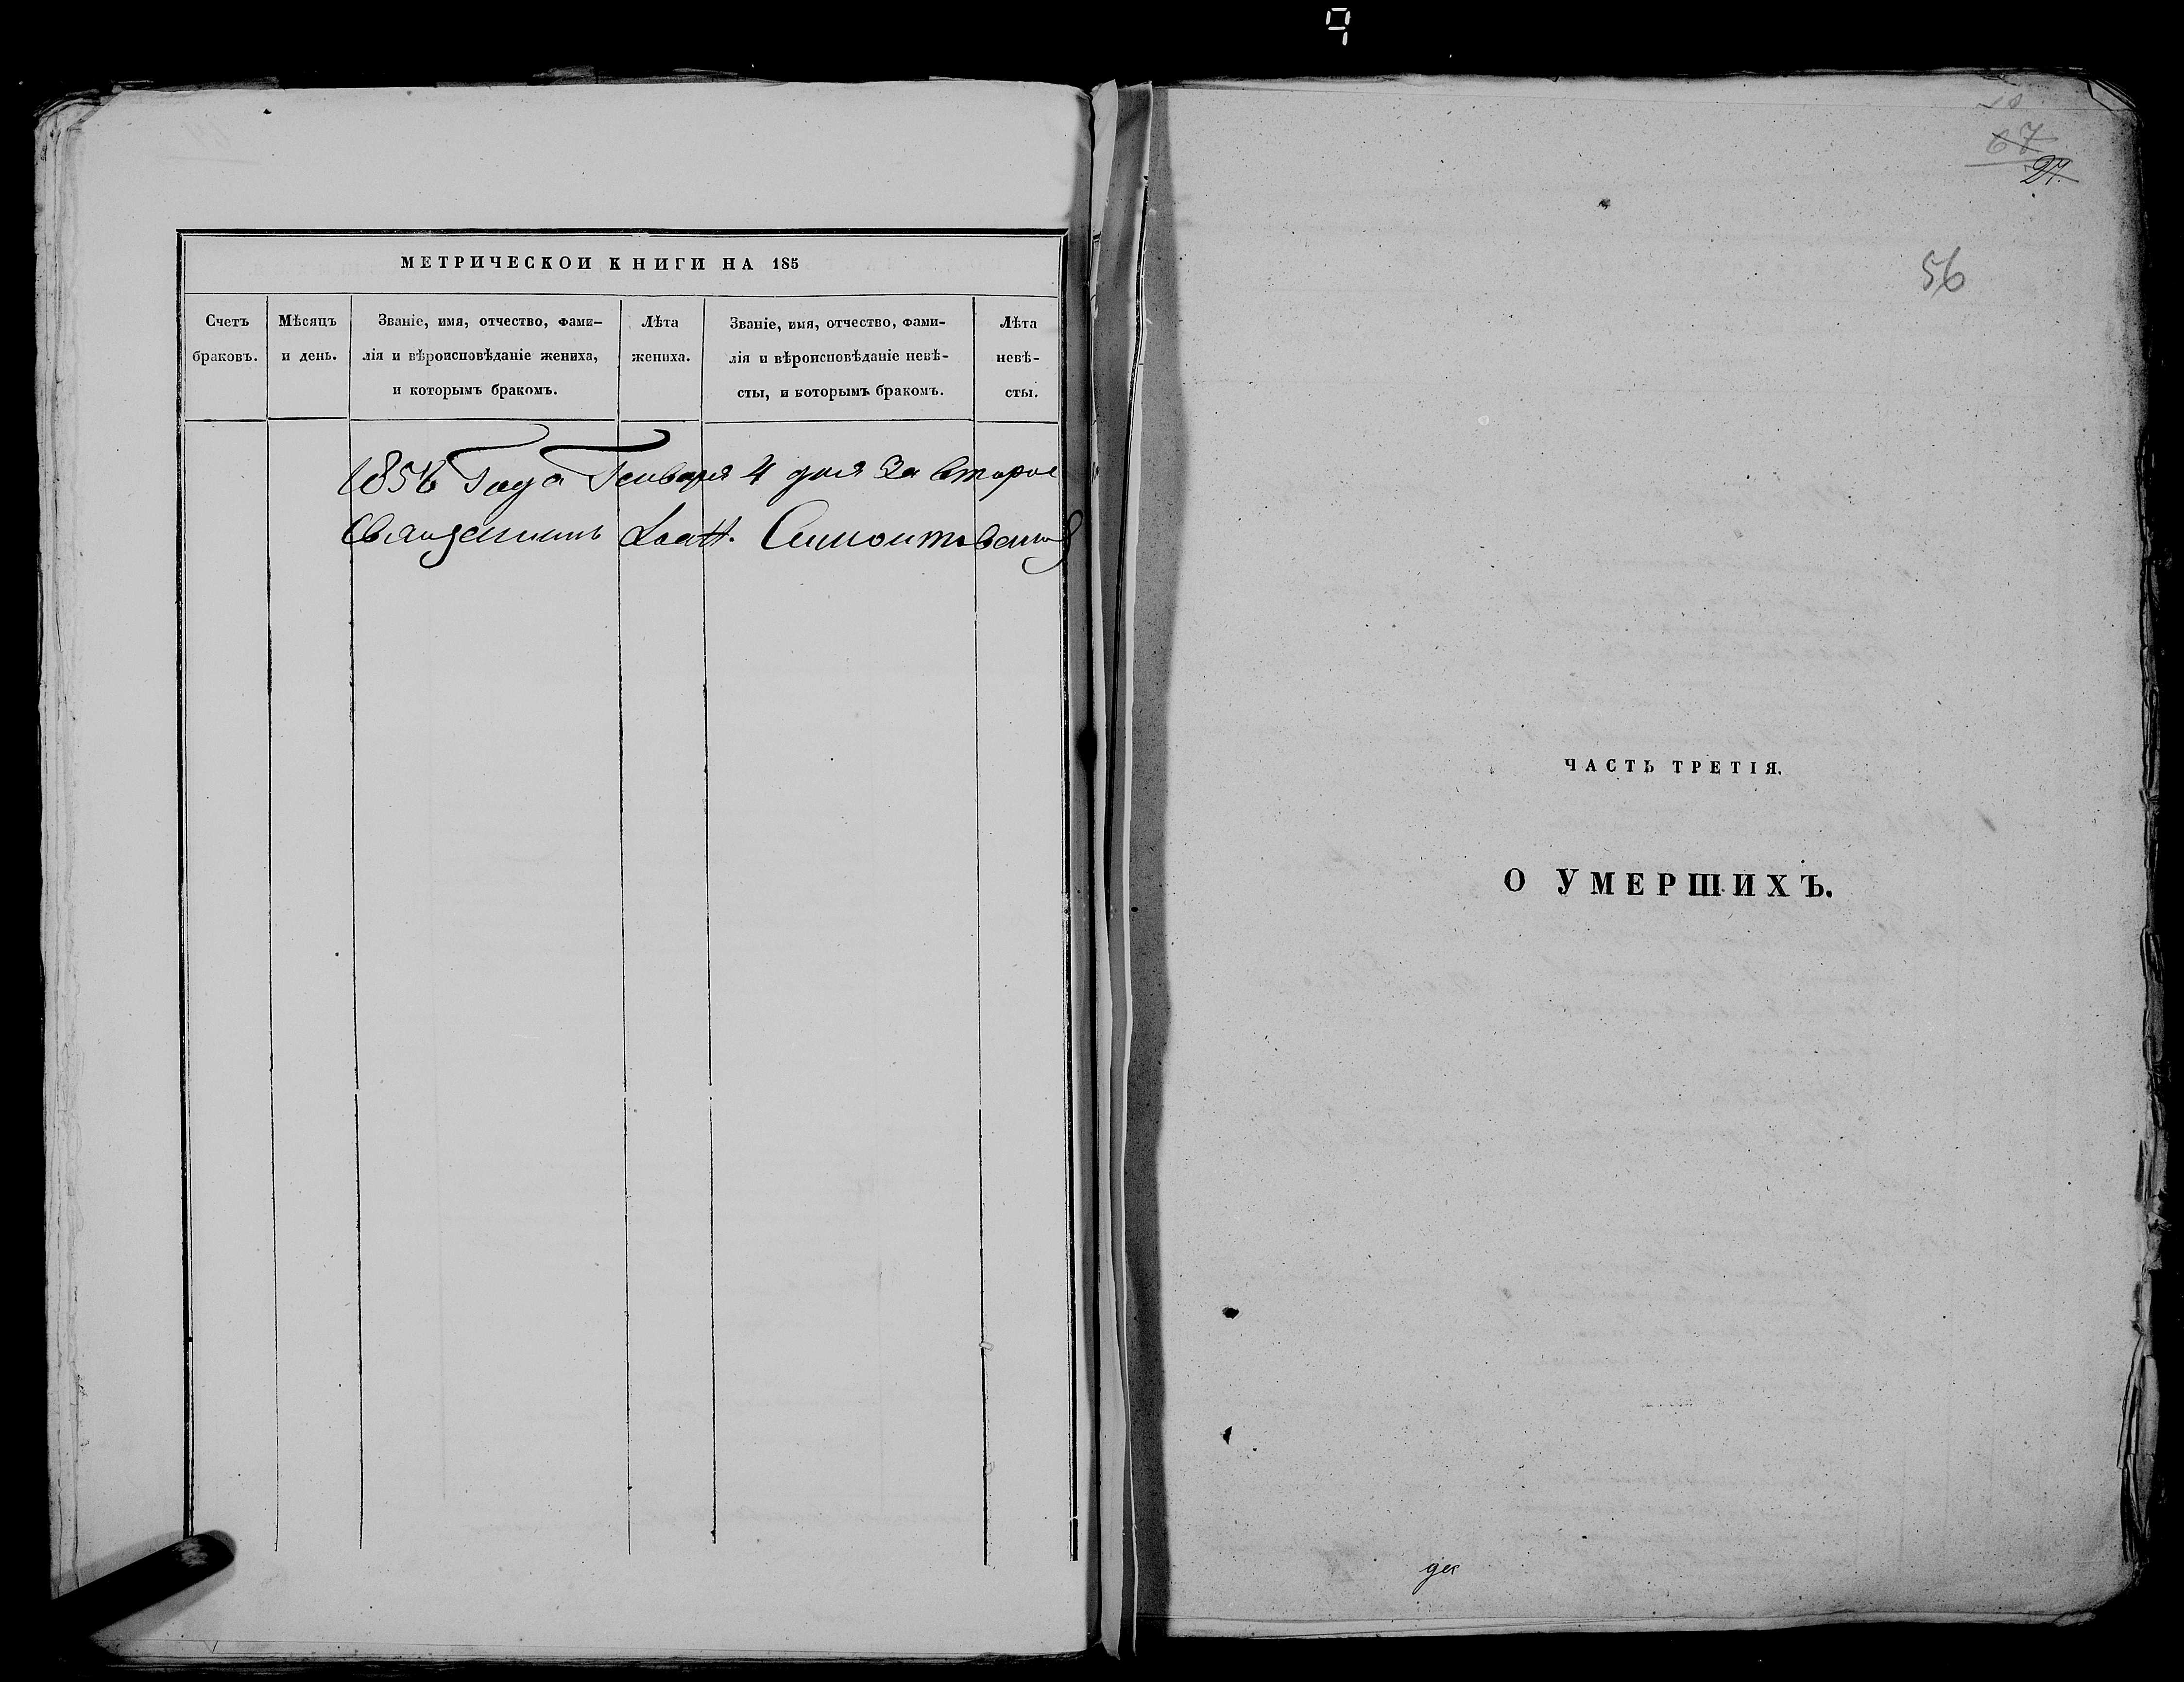 МЕТРИЧЕСКОЙ КНИГИ НА 185
Счетъ браковъ.
Мѣсяцъ и день.
Званіе, имя, отчество, фами-
лія и вѣроисповѣданіе жениха,
и которымъ бракомъ.
Лѣта
жениха.
Званіе, имя, отчество, фами-
лія и вѣроисповѣданіе невѣ-
сты, и которымъ бракомъ.
Лѣта
невѣ-
сты.
1856 Года Генваря 4 дня За второе
Священникъ
67
27.
56
ЧАСТЬ ТРЕТІЯ.
О УМЕРШИХЪ.